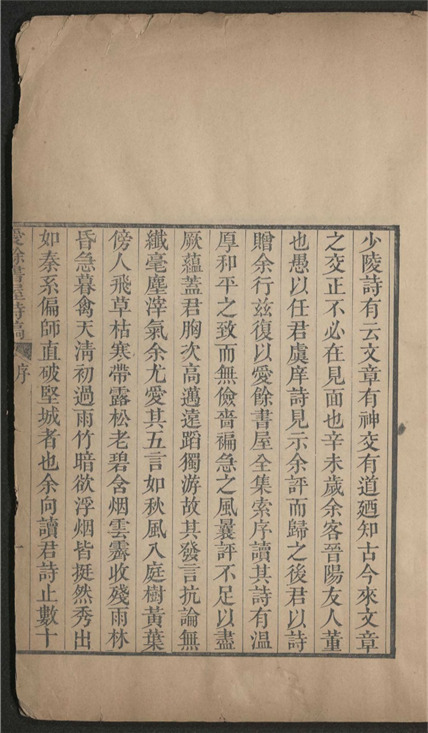 少陵詩有云文章有神交有道廼知古今來文章
之交正不必在見面也辛未歲余客晉陽友人董
也愚以任君虞庠詩見示余評而歸之後君以詩
贈余行兹復以愛餘書屋全集索序讀其詩有溫
厚和平之致而無儉嗇褊急之風曩評不足以盡
厥蘊蓋君胸次高邁遠蹈獨游故其發言抗論無
纖毫塵滓氣余尤愛其五言如秋風入庭樹黃葉
傍人飛草枯寒帶露松老碧含烟雲霽收殘雨林
昏急暮禽天淸初過雨竹暗欲浮烟皆挺然秀出
如秦系偏師直破堅城者也余向讀君詩止數十
愛餘書屋詩稿 序